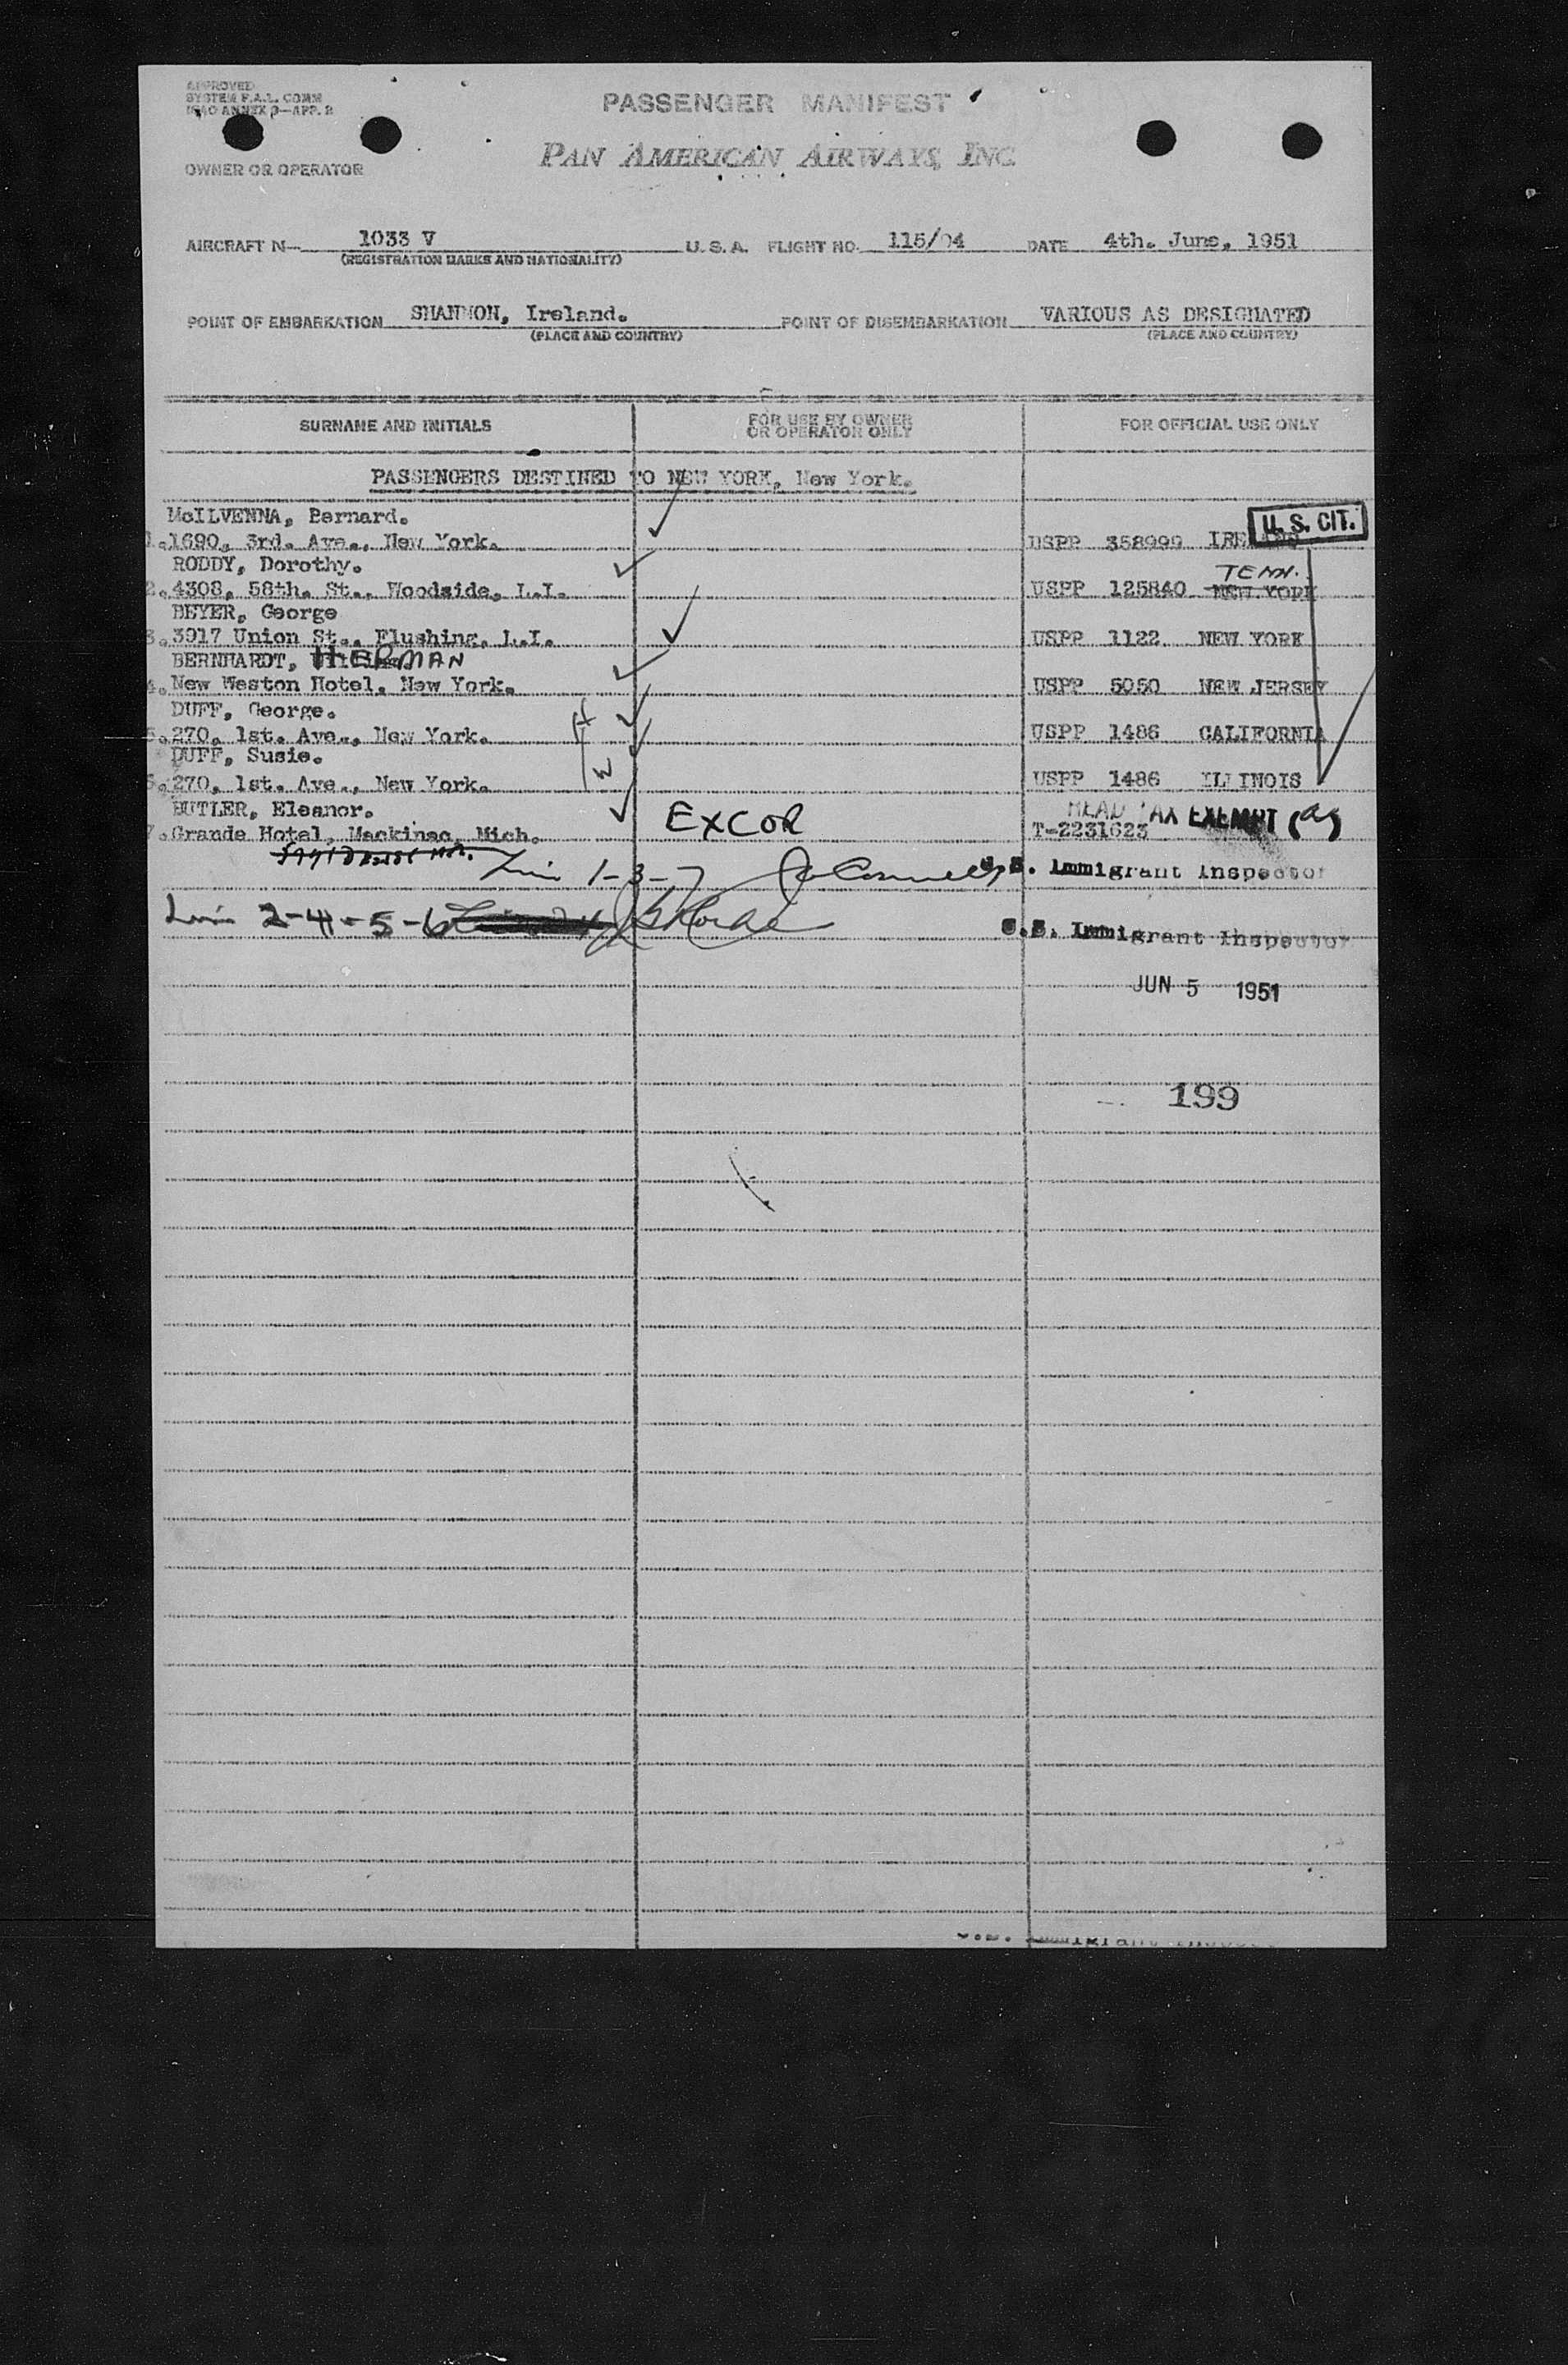 APPROVED
SYSTEM F.A.L. COMM
ICAO ANNEX 9—APP. 2
PASSENGER MANIFEST
PAN AMERICAN AIRWAYS, INC.
OWNER OR OPERATOR
AIRCRAFT N— 1033 V U. S. A. FLIGHT NO. 115/04 DATE 4th. June, 1951
(REGISTRATION MARKS AND NATIONALITY)
POINT OF EMBARKATION SHANNON, Ireland. POINT OF DISEMBARKATION VARIOUS AS DESIGNATED
(PLACE AND COUNTRY) (PLACE AND COUNTRY)
SURNAME AND INITIALS FOR USE BY OWNER OR OPERATOR ONLY FOR OFFICIAL USE ONLY
PASSENGERS DESTINED TO NEW YORK, New York.
McILVENNA, Bernard. U. S. CIT.
1. 1690, 3rd. Ave., New York. USPP 358999 IRELAND
RODDY, Dorothy. TENN.
2. 4308, 58th. St., Woodside, L.I. USPP 125840 NEW YORK
BEYER, George
3. 3917 Union St., Flushing, L.I. USPP 1122 NEW YORK
BERNHARDT, HERMAN
4. New Weston Hotel, New York. USPP 5050 NEW JERSEY
DUFF, George. H
5. 270, 1st. Ave., New York. USPP 1486 CALIFORNIA
DUFF, Susie. W
6. 270, 1st. Ave., New York. USPP 1486 ILLINOIS
BUTLER, Eleanor. EXCOR HEAD TAX EXEMPT (a)
7. Grande Hotel, Mackinac, Mich. T-2231623
1-3-7 U.S. Immigrant Inspector
2-4-5-6 U.S. Immigrant Inspector
JUN 5 1951
199